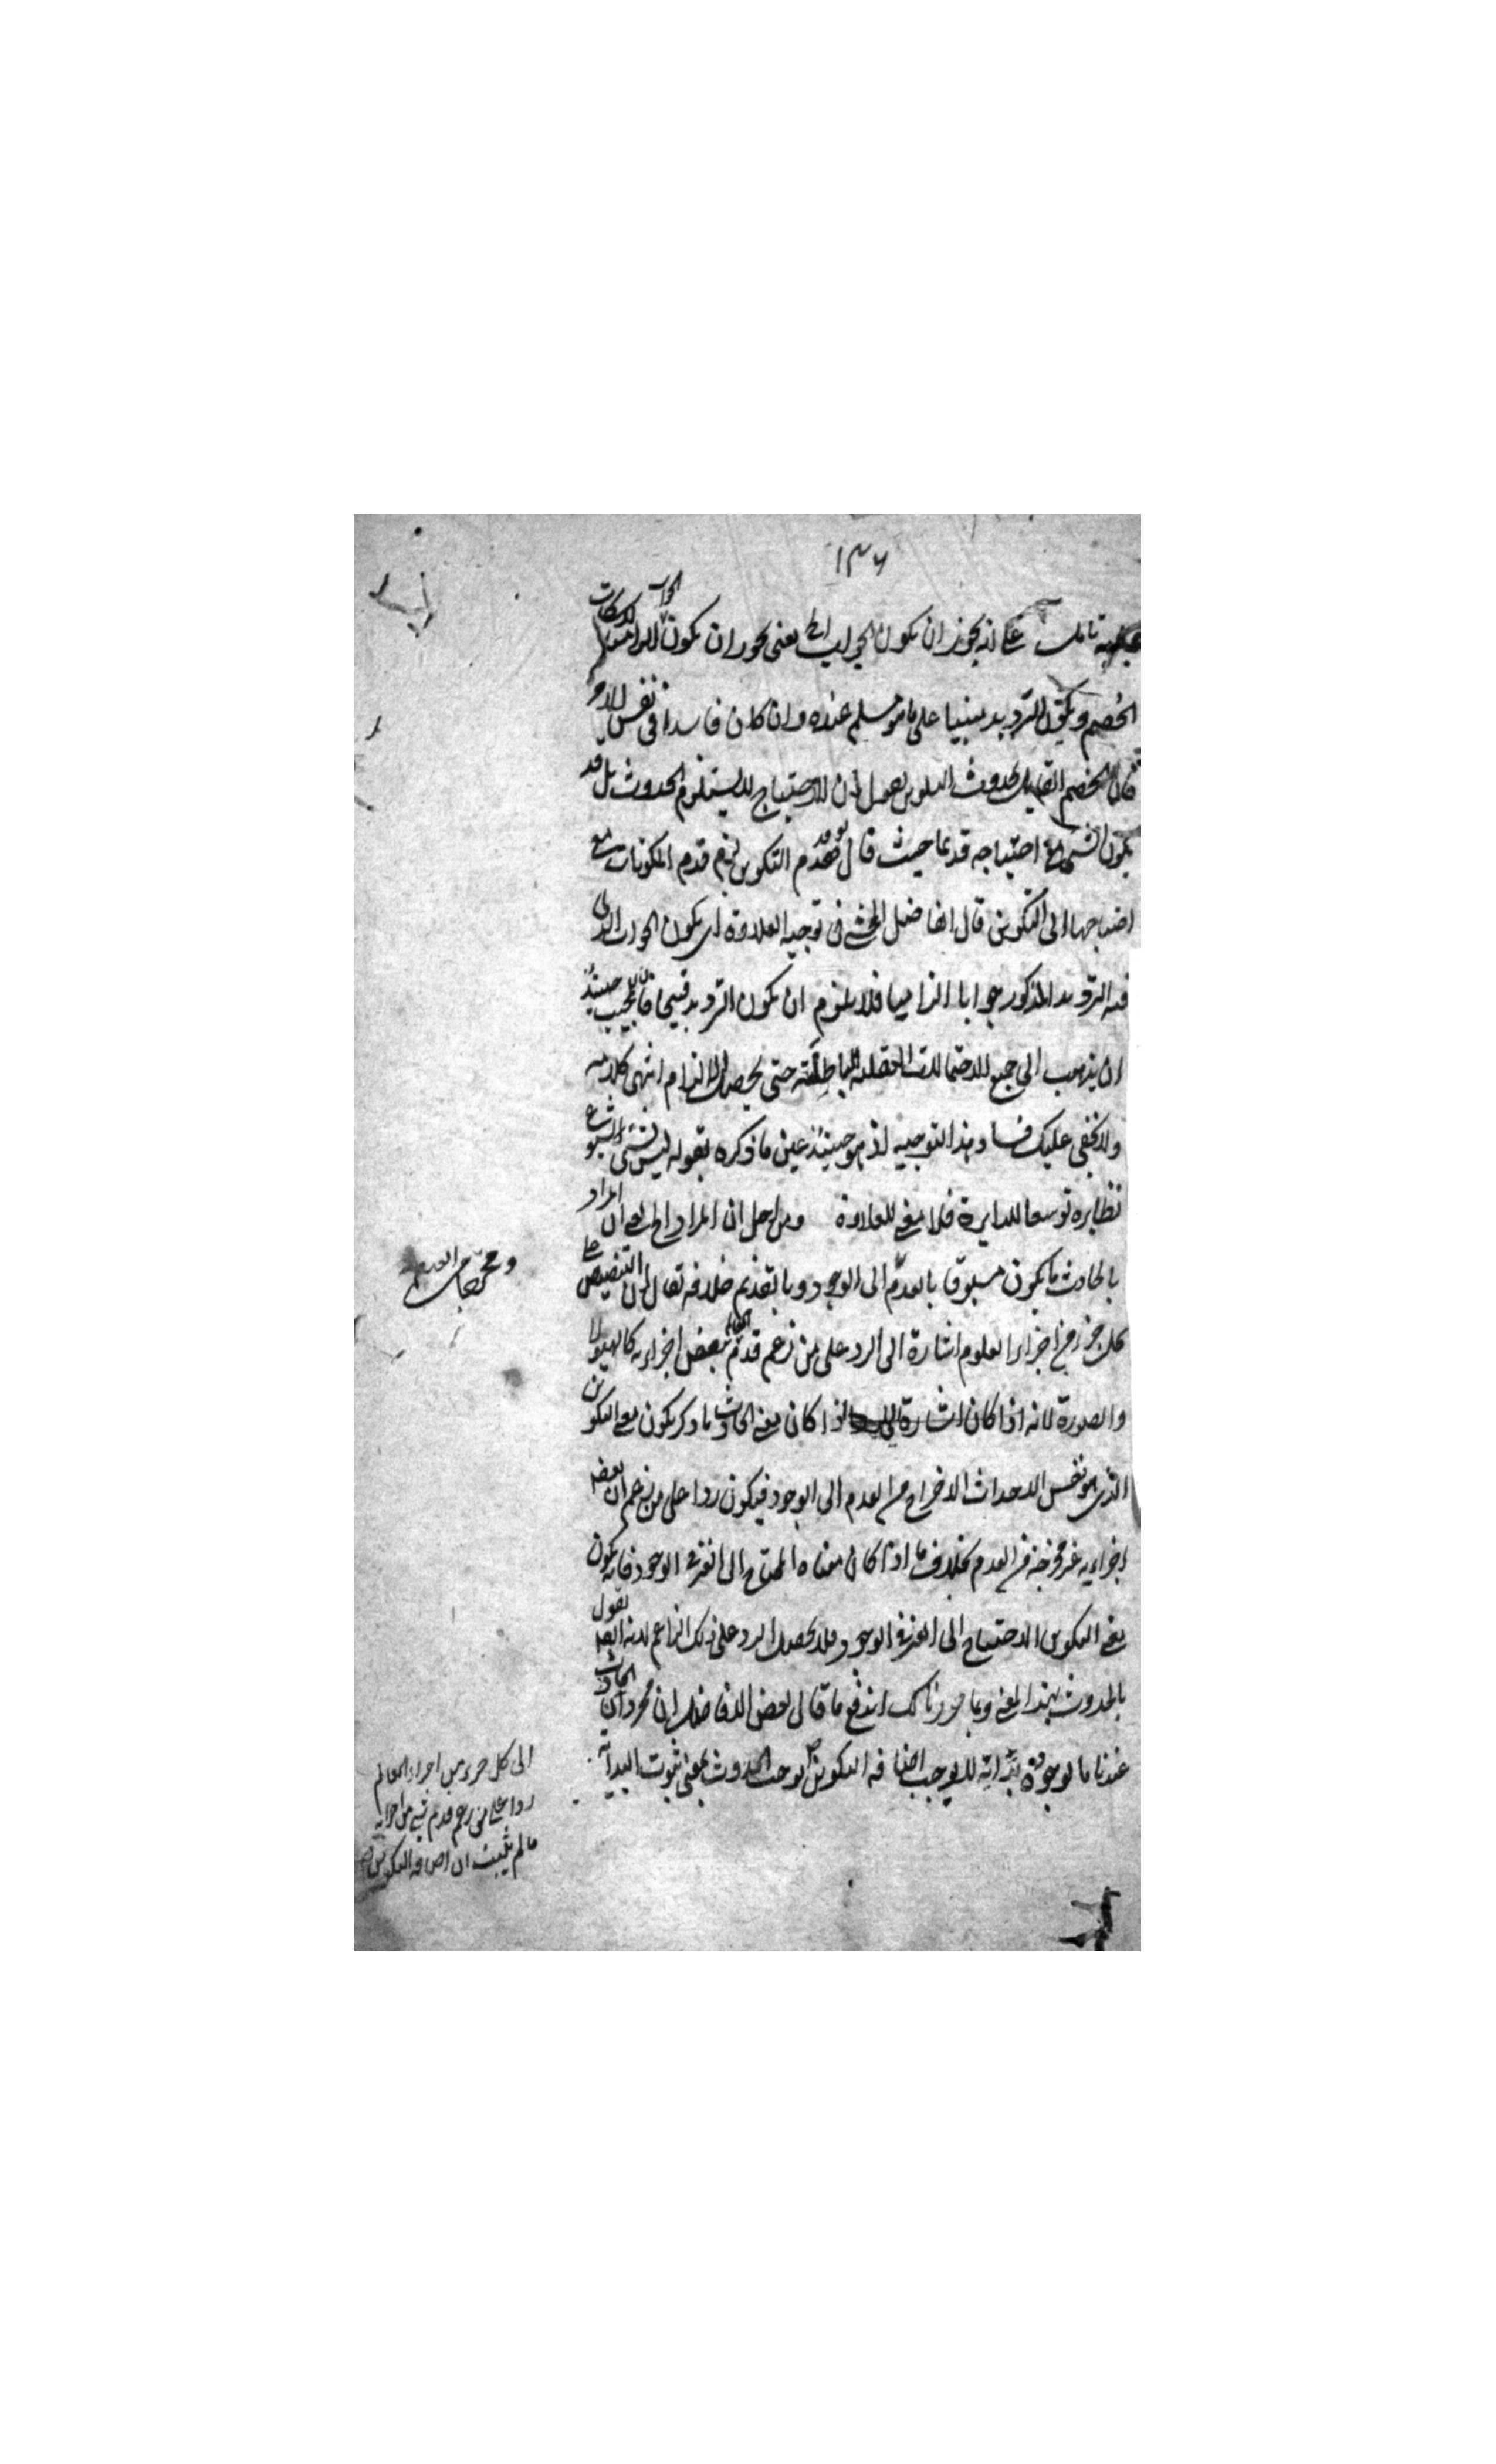 ١٣٦
تامل على انه يجوز ان يكون الجواب الخ يعنى يجوز ان يكون الجواب لاسكات
الخصم ويكون الترديد مبنيا على ما هو مسلم عنده وان كان فاسدا فى نفس الامر
فان الخصم القايل بحدوث التكوين يقول ان الاحتياج لا يستلزم الحدوث بل قد
يكون الشئ مع احتياجه قديما حيث قال لو قدم التكوين لزم قدم المكونات مع
احتياجها الى التكوين قال الفاضل المحشى فى توجيه العلاوة اى يكون الجواب الذى
فيه الترديد المذكور جوابا الزاميا فلا يلزم ان يكون الترديد قبيحا فان للمجيب حينئذ
ان يذهب الى جميع الاحتمالات العقلية الباطلة حتى يحصل الالزام انتهى كلامه
ولا يخفى عليك فساد هذا التوجيه اذ هو حينئذ عين ما ذكره بقوله ليس بشئ الشيوع
نظايره توسعا للدايرة فلا معنى للعلاوة ومن اجل ان المراد الخ يعنى ان المراد
بالحادث ما يكون مسبوقا بالعدم الى الوجود وبالقديم خلافه يقال ان التنصيص على
كل جزء من اجزاء العلوم اشارة الى الرد على من زعم قدم العالم ببعض اجزايه كالهيولى
والصورة لانه اذا كان اشارة اذا كان معنى الحادث ما ذكر يكون معنى التكوين
الذى هو نفس الاحداث الاخراج من العدم الى الوجود فيكون ردا على من زعم ان بعض
اجزايه غير مخرجة من العدم بخلاف ما اذا كان معناه المحتاج الى الغير فى الوجود فانه يكون
معنى التكوين الاحتياج الى الغير فى الوجود فلا يحصل الرد على ذلك الزاعم لانه ايضا يقول
بالحدوث بهذا المعنى وبما حررنا لك اندفع ما قال بعض الافاضل ان مجرد ان الحادث
عندنا ما لوجوده بداية لا يوجب اضافة التكوين لوجب الحدوث بمعنى ثبوت البداية
ومخرجا من العدم
الى كل جزء من اجزاء العالم
ردا على من زعم قدم شئ من اجزايه
ما لم يثبت ان اضافة التكوين